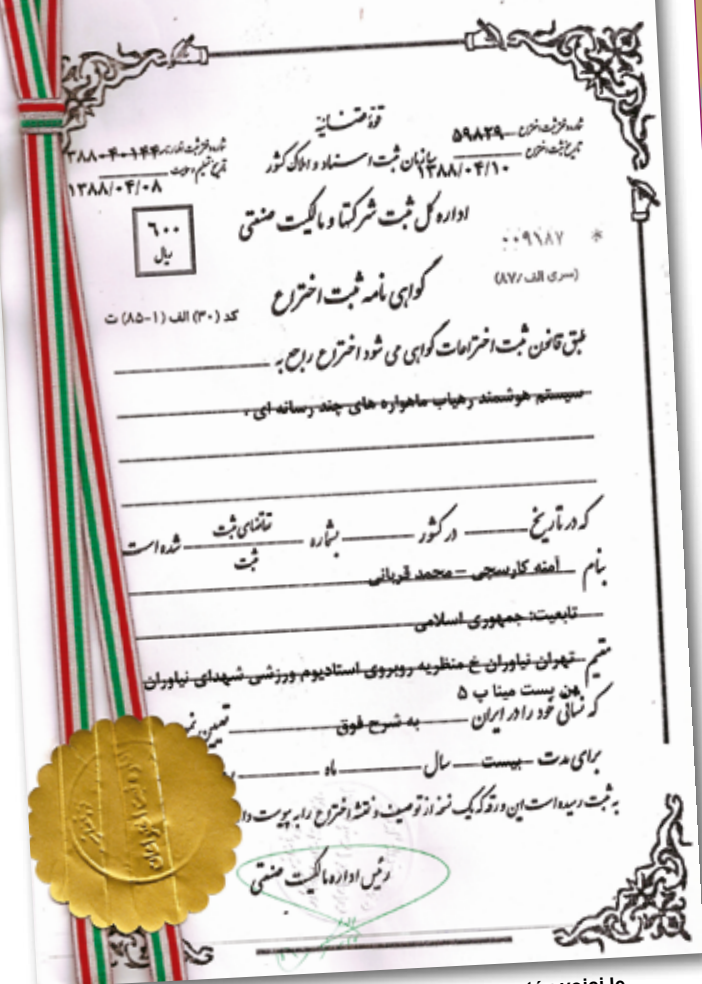 قوه قضائیه
سازمان ثبت اسناد و املاک کشور
شماره ثبت اختراع ۵۹۸۲۹
تاریخ ثبت اختراع ۱۳۸۸/۰۴/۱۰
۱۳۸۸/۰۴/۰۸
اداره کل ثبت شرکتها و مالکیت صنعتی
۶۰۰
ریال
۰۰۹۱۸۷ *
(سری الف/۸۷)
گواهی نامه ثبت اختراع
کد (۳۰) الف (۱-۸۵) ت
طبق قانون ثبت اختراعات گواهی می شود اختراع راجع به
سیستم هوشمند رهیاب ماهواره های چند رسانه ای .
که در تاریخ در کشور بشماره تقاضای ثبت شده است
ثبت
بنام آمنه کارسچی - محمد قربانی
تابعیت: جمهوری اسلامی
مقیم تهران نیاوران خ منظریه روبروی استادیوم ورزشی شهدای نیاوران
بن بست مینا پ ۵
که نشانی خود را در ایران به شرح فوق تعیین
برای مدت بیست سال ماه
به ثبت رسیده است این ورقه که یک نسخه از توصیف و نقشه اختراع را به پیوست
رئیس اداره مالکیت صنعتی